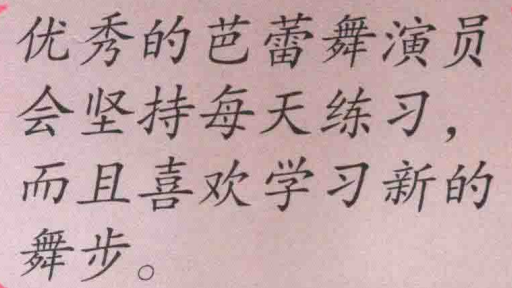 优秀的芭蕾舞演员
会坚持每天练习，
而且喜欢学习新的
舞步。